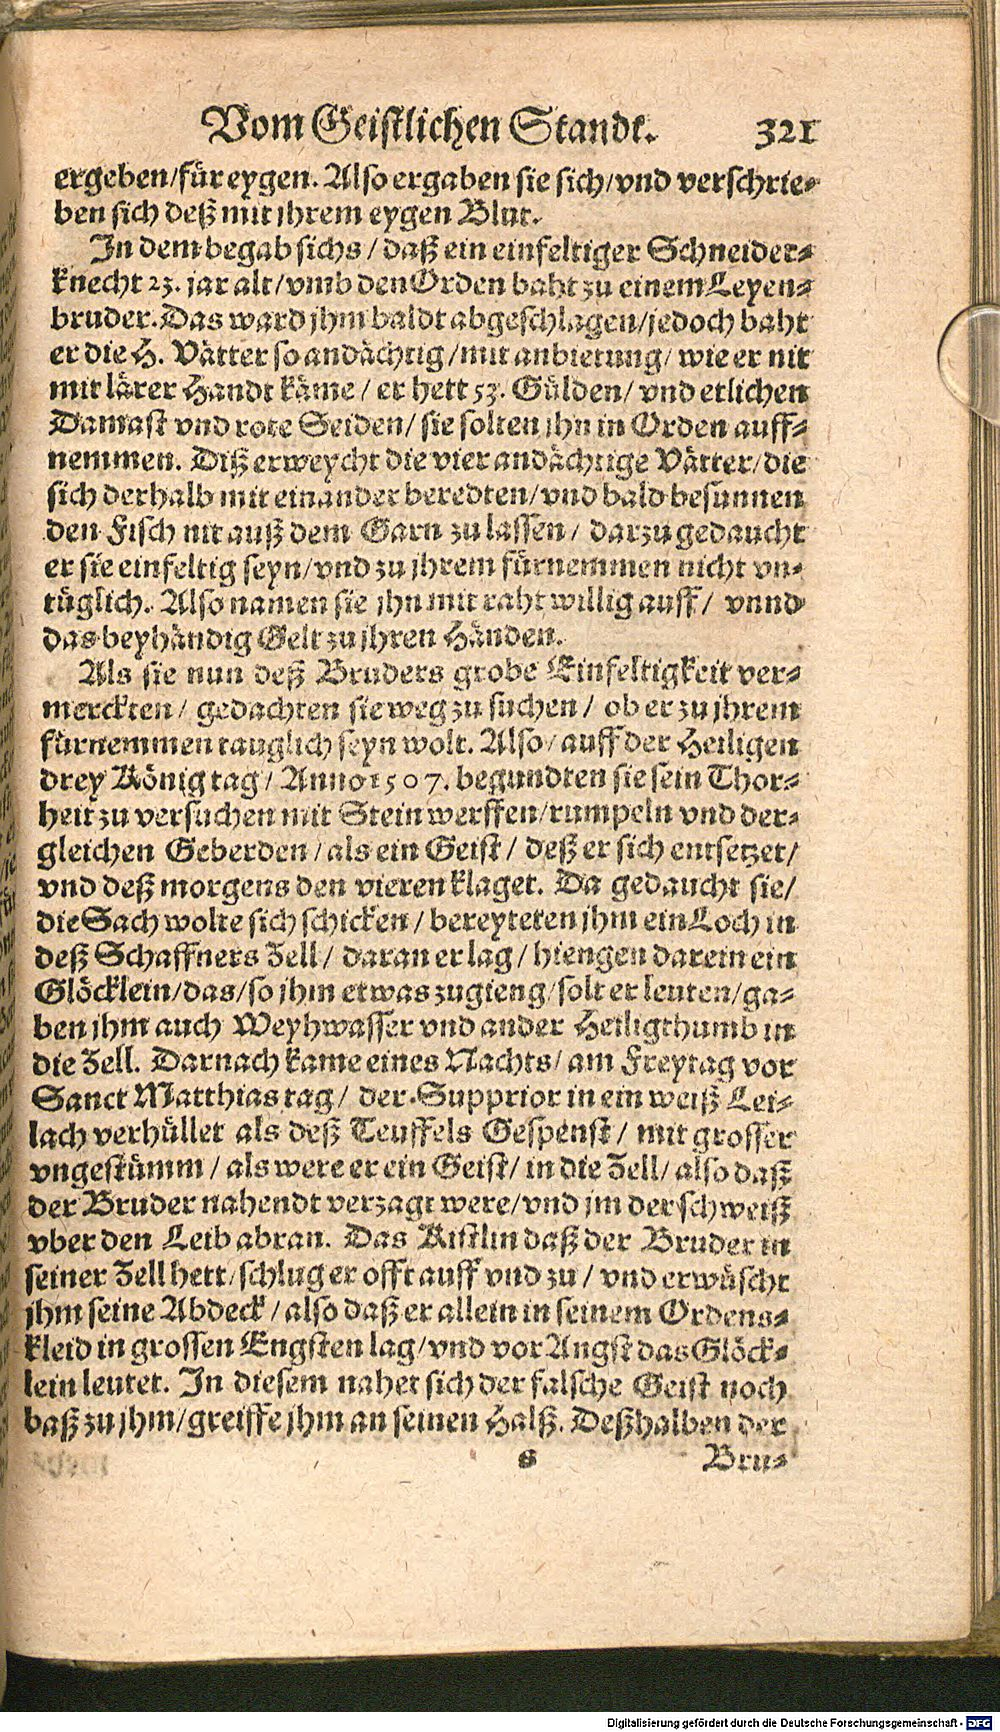 Vom Geistlichen Standt. 321
ergeben/für eygen. Also ergaben sie sich/vnd verschrie-
ben sich deß mit jhrem eygen Blut.
In dem begab sichs/daß ein einfeltiger Schneider-
knecht 23. jar alt/vmb den Orden baht zu einem Leyen-
bruder. Das ward jhm baldt abgeschlagen/jedoch baht
er die H. Vätter so andächtig/mit anbietung/wie er nit
mit lärer Handt käme/er hett 53. Gülden/vnd etlichen
Damast vnd rote Seiden/sie solten jhn in Orden auff-
nemmen. Diß erweycht die vier andächtige Vätter/die
sich derhalb mit einander beredten/vnd bald besunnen
den Fisch nit auß dem Garn zu lassen/darzu gedaucht
er sie einfeltig seyn/vnd zu jhrem fürnemmen nicht vn-
tüglich. Also namen sie jhn mit raht willig auff/vnnd
das beyhändig Gelt zu jhren Händen.
Als sie nun deß Bruders grobe Einfeltigkeit ver-
merckten/gedachten sie weg zu suchen/ob er zu jhrem
fürnemmen tauglich seyn wolt. Also/auff der Heiligen
drey König tag/Anno 1507. begundten sie sein Thor-
heit zu versuchen mit Stein werffen/rumpeln vnd der-
gleichen Geberden/als ein Geist/deß er sich entsetzet/
vnd deß morgens den vieren klaget. Da gedaucht sie/
die Sach wolte sich schicken/bereyteten jhm ein Loch in
deß Schaffners Zell/daran er lag/hiengen darein ein
Glöcklein/das/so jhm etwas zugieng/solt er leuten/ga-
ben jhm auch Weyhwasser vnd ander Heiligthumb in
die Zell. Darnach kame eines Nachts/am Freytag vor
Sanct Matthias tag/der Supprior in ein weiß Lei-
lach verhüllet als deß Teuffels Gespenst/mit grosser
vngestümm/als were er ein Geist/in die Zell/also daß
der Bruder nahendt verzagt were/vnd jm der schweiß
vber den Leib abran. Das Kistlin daß der Bruder in
seiner Zell hett/schlug er offt auff vnd zu/vnd erwüscht
jhm seine Abdeck/also daß er allein in seinem Ordens-
kleid in grossen Engsten lag/vnd vor Angst das Glöck-
lein leutet. In diesem nahet sich der falsche Geist noch
baß zu jhm/greiffe jhm an seinen Halß. Deßhalben der
s Bru-
Digitalisierung gefördert durch die Deutsche Forschungsgemeinschaft - DFG